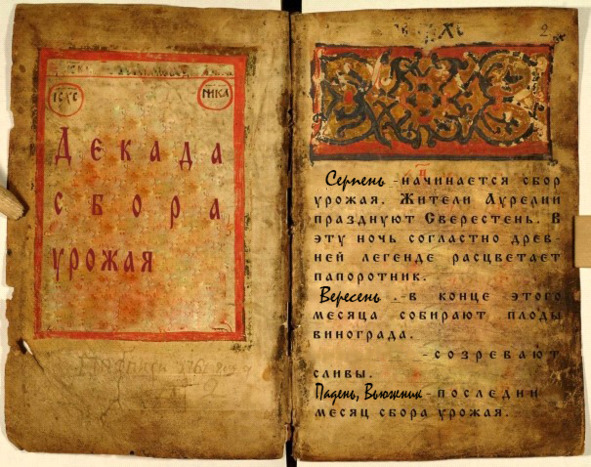 ІС ХС
НИКА
Декада
сбора
урожая
Серпень - начинается сбор
урожая. Жители Аурелии
празднуют Сверестень. В
эту ночь согластно древ-
ней легенде расцветает
папоротник.
Вересень .-в конце этого
месяца собирают плоды
винограда.
-созревают
сливы.
Падень, Вьюжник-последний
месяц сбора урожая.